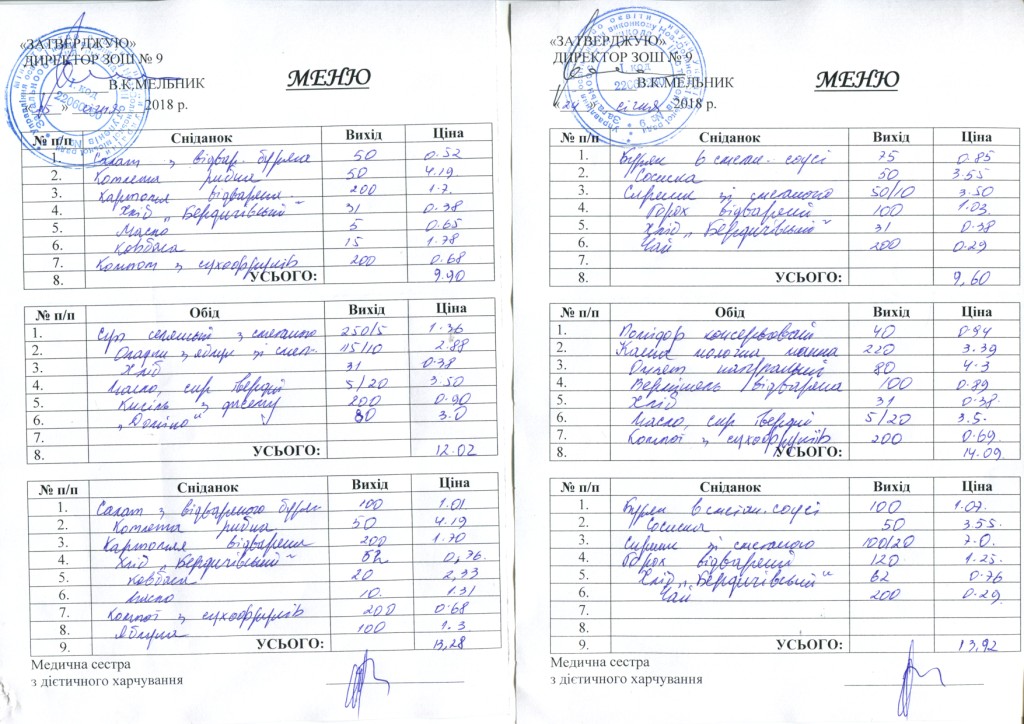 «ЗАТВЕРДЖУЮ»
ДИРЕКТОР ЗОШ № 9
В.К.МЕЛЬНИК
МЕНЮ
«25» січня 2018 р.
№ п/п Сніданок Вихід Ціна
1. Салат з відвар. буряка 50 0.52
2. Котлета рибна 50 4.19
3. Картопля відварена 200 1.7.
4. Хліб „Бердичівський" 31 0.38
5. Масло 5 0.65
6. Ковбаса 15 1.78
7. Компот з сухофруктів 200 0.68
8. УСЬОГО: 9.90
№ п/п Обід Вихід Ціна
1. Суп селянський з сметаною 250/5 1.36
2. Оладки з яблук зі смет. 115/10 2.88
3. Хліб 31 0.38
4. Масло, сир твердий 5/20 3.50
5. Кисіль з джему 200 0.90
6. „Доміно" 80 3.0
7.
8. УСЬОГО: 12.02
№ п/п Сніданок Вихід Ціна
1. Салат з відвареного буряк. 100 1.01
2. Котлета рибна 50 4.19
3. Картопля відварена 200 1.70
4. Хліб „Бердичівський" 62 0,76.
5. Ковбаса 20 2,33
6. Масло 10. 1.31
7. Компот з сухофруктів 200 0.68
8. Яблуня 100 1.3
9. УСЬОГО: 13,28
Медична сестра
з дієтичного харчування
«ЗАТВЕРДЖУЮ»
ДИРЕКТОР ЗОШ № 9
В.К.МЕЛЬНИК
МЕНЮ
«24» січня 2018 р.
№ п/п Сніданок Вихід Ціна
1. Буряк в сметан. соусі 75 0.85
2. Сосиска 50 3.55
3. Сирники зі сметаною 50/10 3.50
4. Горох відварений 100 1.03.
5. Хліб „Бердичівський" 31 0.38
6. Чай 200 0.29
7.
8. УСЬОГО: 9,60
№ п/п Обід Вихід Ціна
1. Помідор консервований 40 0.94
2. Каша молочна манна 220 3.39
3. Омлет натуральний 80 4.3
4. Вермішель відварена 100 0.89
5. Хліб 31 0.38
6. Масло, сир твердий 5/20 3.5.
7. Компот з сухофруктів 200 0.69.
8. УСЬОГО: 14.09
№ п/п Сніданок Вихід Ціна
1. Буряк в сметан. соусі 100 1.07.
2. Сосиска 50 3.55.
3. Сирники зі сметаною 100/20 7.0.
4. Горох відварений 120 1.25.
5. Хліб „Бердичівський" 62 0.76
6. Чай 200 0.29
7.
8.
9. УСЬОГО: 13,92
Медична сестра
з дієтичного харчування